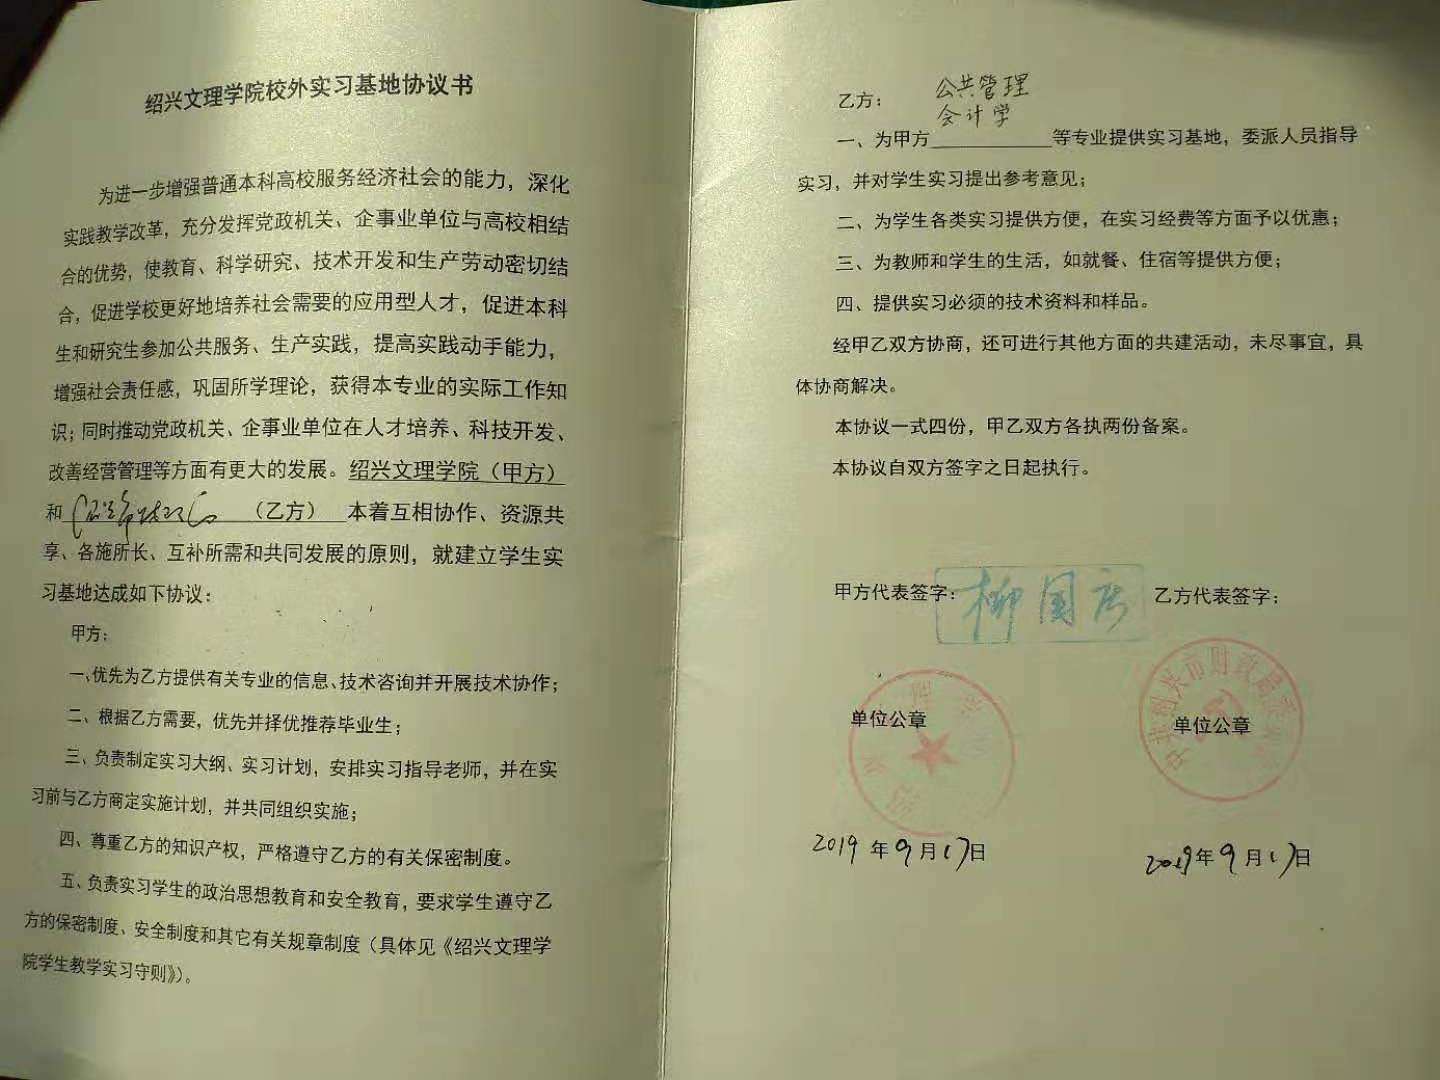 绍兴文理学院校外实习基地协议书
为进一步增强普通本科高校服务经济社会的能力，深化
实践教学改革，充分发挥党政机关、企事业单位与高校相结
合的优势，使教育、科学研究、技术开发和生产劳动密切结
合，促进学校更好地培养社会需要的应用型人才，促进本科
生和研究生参加公共服务、生产实践，提高实践动手能力，
增强社会责任感，巩固所学理论，获得本专业的实际工作知
识；同时推动党政机关、企事业单位在人才培养、科技开发、
改善经营管理等方面有更大的发展。绍兴文理学院（甲方）
和绍兴市财政局（乙方）本着互相协作、资源共
享、各施所长、互补所需和共同发展的原则，就建立学生实
习基地达成如下协议：
甲方：
一、优先为乙方提供有关专业的信息、技术咨询并开展技术协作；
二、根据乙方需要，优先并择优推荐毕业生；
三、负责制定实习大纲、实习计划，安排实习指导老师，并在实
习前与乙方商定实施计划，并共同组织实施；
四、尊重乙方的知识产权，严格遵守乙方的有关保密制度。
五、负责实习学生的政治思想教育和安全教育，要求学生遵守乙
方的保密制度、安全制度和其它有关规章制度（具体见《绍兴文理学
院学生教学实习守则》）。
乙方：
公共管理
会计学
一、为甲方等专业提供实习基地，委派人员指导
实习，并对学生实习提出参考意见；
二、为学生各类实习提供方便，在实习经费等方面予以优惠；
三、为教师和学生的生活，如就餐、住宿等提供方便；
四、提供实习必须的技术资料和样品。
经甲乙双方协商，还可进行其他方面的共建活动，未尽事宜，具
体协商解决。
本协议一式四份，甲乙双方各执两份备案。
本协议自双方签字之日起执行。
甲方代表签字： 柳国庆 乙方代表签字：
中共绍兴市财政局委员会
单位公章 单位公章
2019年9月17日 2019年9月17日